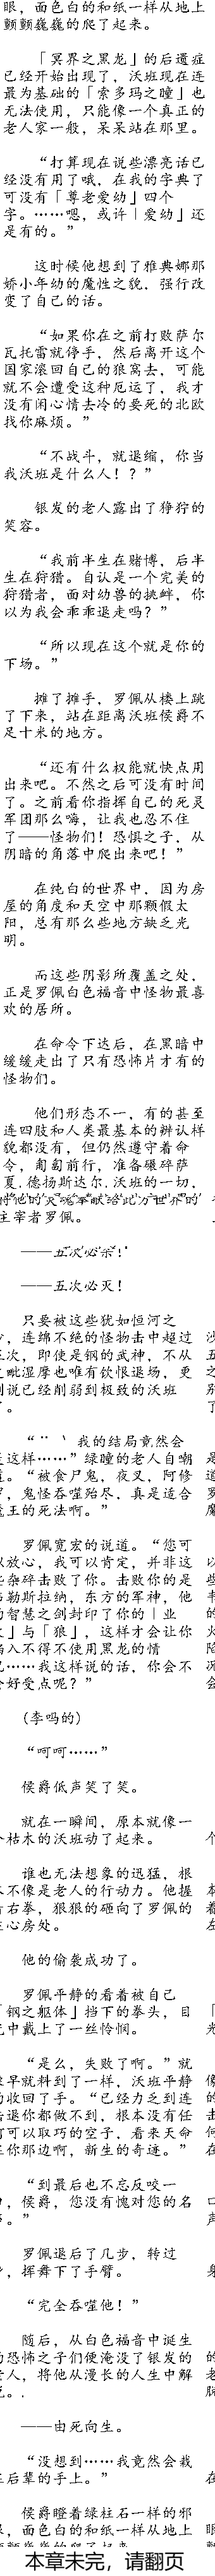 眼，面色白的和纸一样从地上
颤颤巍巍的爬了起来。
「冥界之黑龙」的后遗症
已经开始出现了，沃班现在连
最为基础的「索多玛之瞳」也
无法使用，只能像一个真正的
老人家一般，呆呆站在那里。
“打算现在说些漂亮话已
经没有用了哦，在我的字典了
可没有「尊老爱幼」四个
字。……嗯，或许「爱幼」还
是有的。”
这时候他想到了雅典娜那
娇小年幼的魔性之貌，强行改
变了自己的话。
“如果你在之前打败萨尔
瓦托雷就停手，然后离开这个
国家滚回自己的狼窝去，可能
就不会遭受这种厄运了，我才
没有闲心情去冷的要死的北欧
找你麻烦。”
“不战斗，就退缩，你当
我沃班是什么人！？”
银发的老人露出了狰狞的
笑容。
“我前半生在赌博，后半
生在狩猎。自认是一个完美的
狩猎者，面对幼兽的挑衅，你
以为我会乖乖退走吗？”
“所以现在这个就是你的
下场。”
摊了摊手，罗佩从楼上跳
了下来，站在距离沃班侯爵不
足十米的地方。
“还有什么权能就快点用
出来吧。不然之后可没有时间
了。之前看你指挥自己的死灵
军团那么嗨，让我也忍不住
了——怪物们！恐惧之子，从
阴暗的角落中爬出来吧！”
在纯白的世界中，因为房
屋的角度和天空中那颗假太
阳，总有那么些地方缺乏光
明。
而这些阴影所覆盖之处，
正是罗佩白色福音中怪物最喜
欢的居所。
在命令下达后，在黑暗中
缓缓走出了只有恐怖片才有的
怪物们。
他们形态不一，有的甚至
连四肢和人类最基本的辨认样
貌都没有，但仍然遵守着命
令，匍匐前行，准备碾碎萨
夏.德扬斯达尔.沃班的一切，
将他的灵魂奉献给此方世界的
主宰者罗佩。
——五次必杀！
——五次必灭！
只要被这些犹如恒河之
沙，连绵不绝的怪物击中超过
五次，即使是钢的武神，不从
之毗湿摩也唯有饮恨退场，更
别说已经削弱到极致的沃班
了。
我的结局竟然会
是这样……”绿瞳的老人自嘲
道。“被食尸鬼，夜叉，阿修
罗，鬼怪吞噬殆尽，真是适合
魔王的死法啊。”
罗佩宽宏的说道。“您可
以放心，我可以肯定，并非这
些杂碎击败了你。击败你的是
韦勒斯拉纳，东方的军神，他
的智慧之剑封印了你的「业
火」与「狼」，这样才会让你
陷入不得不使用黑龙的情
况……我这样说的话，你会不
会好受点呢？”
（李吗的）
“呵呵……”
侯爵低声笑了笑。
就在一瞬间，原本就像一
个枯木的沃班动了起来。
谁也无法想象的迅猛，根
本不像是老人的行动力。他握
着右拳，狠狠的砸向了罗佩的
左心房处。
他的偷袭成功了。
罗佩平静的看着被自己
「钢之躯体」挡下的拳头，目
光中戴上了一丝怜悯。
“是么，失败了啊。”就
像早就料到了一样，沃班平静
的收回了手。“已经力乏到连
击退你都做不到，根本没有任
何可以取巧的空子，看来天命
在你那边啊，新生的奇迹。”
“到最后也不忘反咬一
口，侯爵，您没有愧对您的名
声。”
罗佩退后了几步，转过
身，挥舞下了手臂。
“完全吞噬他！”
随后，从白色福音中诞生
的恐怖之子们便淹没了银发的
老人，将他从漫长的人生中解
脱。.
——由死向生。
“没想到……我竟然会栽
在后辈的手上。”
侯爵瞪着绿柱石一样的邪
眼，面色白的和纸一样从地上
本章未完，请翻页